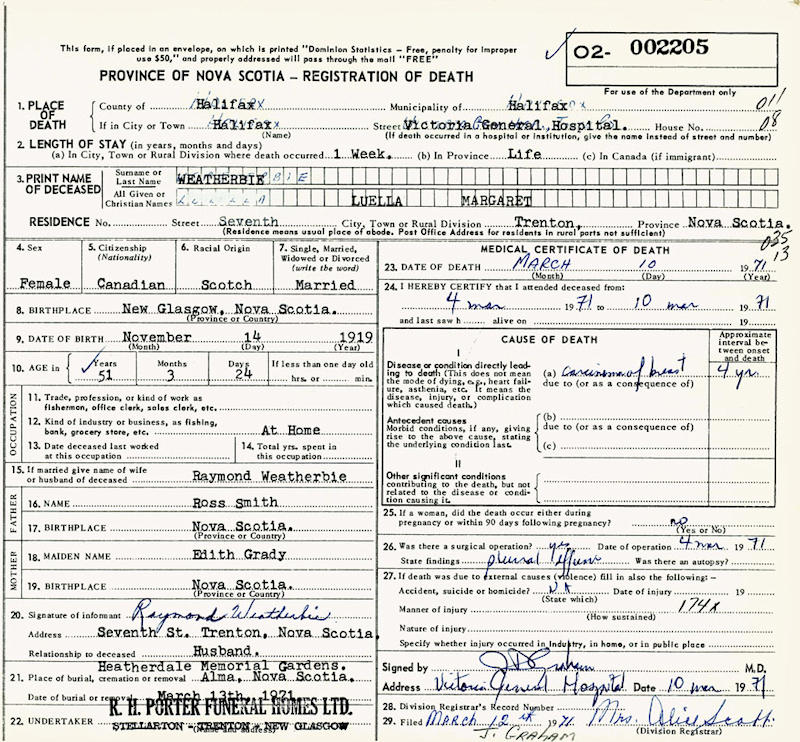 This form, if placed in an envelope, on which is printed "Dominion Statistics — Free, penalty for improper
use $50," and properly addressed will pass through the mail "FREE"
PROVINCE OF NOVA SCOTIA — REGISTRATION OF DEATH
O2- 002205
For use of the Department only
011
08
1. PLACE OF DEATH
County of Halifax Municipality of Halifax
If in City or Town Halifax Street Victoria General Hospital. House No.
(Name) (If death occurred in a hospital or institution, give the name instead of street and number)
2. LENGTH OF STAY (in years, months and days)
(a) In City, Town or Rural Division where death occurred 1 Week. (b) In Province Life (c) In Canada (if immigrant)
3. PRINT NAME OF DECEASED
Surname or Last Name WEATHERBIE
All Given or Christian Names LUELLA MARGARET
RESIDENCE No. Street Seventh City, Town or Rural Division Trenton, Province Nova Scotia.
(Residence means usual place of abode. Post Office Address for residents in rural parts not sufficient)
035
13
4. Sex
Female
5. Citizenship (Nationality)
Canadian
6. Racial Origin
Scotch
7. Single, Married, Widowed or Divorced (write the word)
Married
8. BIRTHPLACE New Glasgow, Nova Scotia.
(Province or Country)
9. DATE OF BIRTH November 14 1919
(Month) (Day) (Year)
10. AGE in Years 51 Months 3 Days 24 If less than one day old
hrs. or min.
OCCUPATION
11. Trade, profession, or kind of work as
fishermen, office clerk, sales clerk, etc.
12. Kind of industry or business, as fishing,
bank, grocery store, etc. At Home
13. Date deceased last worked
at this occupation
14. Total yrs. spent in
this occupation
15. If married give name of wife
or husband of deceased Raymond Weatherbie
FATHER
16. NAME Ross Smith
17. BIRTHPLACE Nova Scotia.
(Province or Country)
MOTHER
18. MAIDEN NAME Edith Grady
19. BIRTHPLACE Nova Scotia.
(Province or Country)
20. Signature of informant Raymond Weatherbie
Address Seventh St. Trenton, Nova Scotia
Relationship to deceased Husband.
Heatherdale Memorial Gardens.
21. Place of burial, cremation or removal Alma, Nova Scotia.
Date of burial or removal March 13th, 1971
R. H. PORTER FUNERAL HOMES LTD.
22. UNDERTAKER STELLARTON - TRENTON - NEW GLASGOW
(Name and address)
MEDICAL CERTIFICATE OF DEATH
23. DATE OF DEATH MARCH 10 1971
(Month) (Day) (Year)
24. I HEREBY CERTIFY that I attended deceased from:
4 mar 1971 to 10 mar 1971
and last saw h alive on 19
CAUSE OF DEATH
Approximate interval between onset and death
I
Disease or condition directly leading to death (This does not mean the mode of dying, e.g., heart failure, asthenia, etc. It means the disease, injury, or complication which caused death.)
(a) carcinoma of breast 4 yr.
due to (or as a consequence of)
Antecedent causes
Morbid conditions, if any, giving rise to the above cause, stating the underlying condition last.
(b)
due to (or as a consequence of)
(c)
II
Other significant conditions
contributing to the death, but not related to the disease or condition causing it.
25. If a woman, did the death occur either during
pregnancy or within 90 days following pregnancy? no
(Yes or No)
26. Was there a surgical operation? yes Date of operation 4 mar 1971
State findings pleural effusion Was there an autopsy?
27. If death was due to external causes (violence) fill in also the following:—
Accident, suicide or homicide? Date of injury 19
(State which)
174x
Manner of injury
(How sustained)
Nature of injury
Specify whether injury occurred in Industry, in home, or in public place
Signed by J D Graham M.D.
Address Victoria General Hospital Date 10 mar 1971
28. Division Registrar's Record Number
29. Filed MARCH 12th 1971 Mrs. Alice Scott
(Division Registrar)
J. GRAHAM